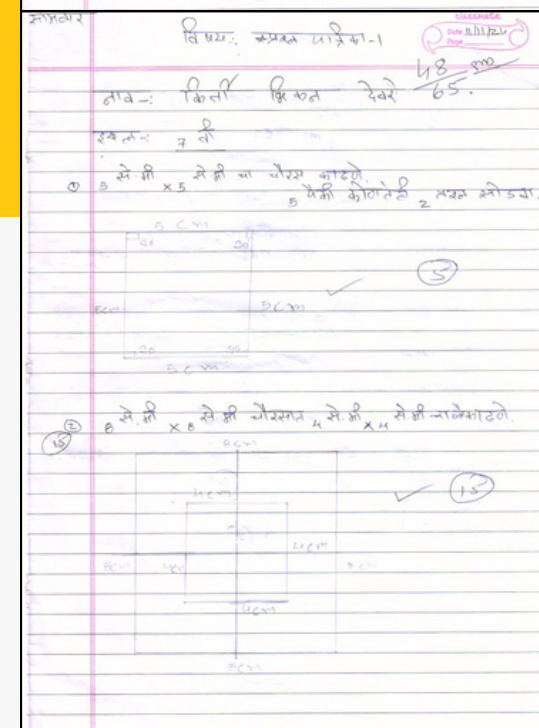 सोमवार
classmate
Date 11/11/24
Page
विषय: प्रश्न पत्रिका-1
48
65.
नाव -: किर्ती देवरे
इयत्ता -: 7 वी
① 5 से.मी × 5 से.मी चा चौरस काढणे.
5 पैकी कोणतेही 2 प्रश्न सोडवा.
5 cm
90 90
5cm 5cm
5
90 90
5 cm
② 8 से.मी × 8 से.मी चौरसात 4 से.मी × 4 से.मी काढणे.
15
8cm
15
4cm
4cm
8cm 4cm 8cm
4cm
8cm